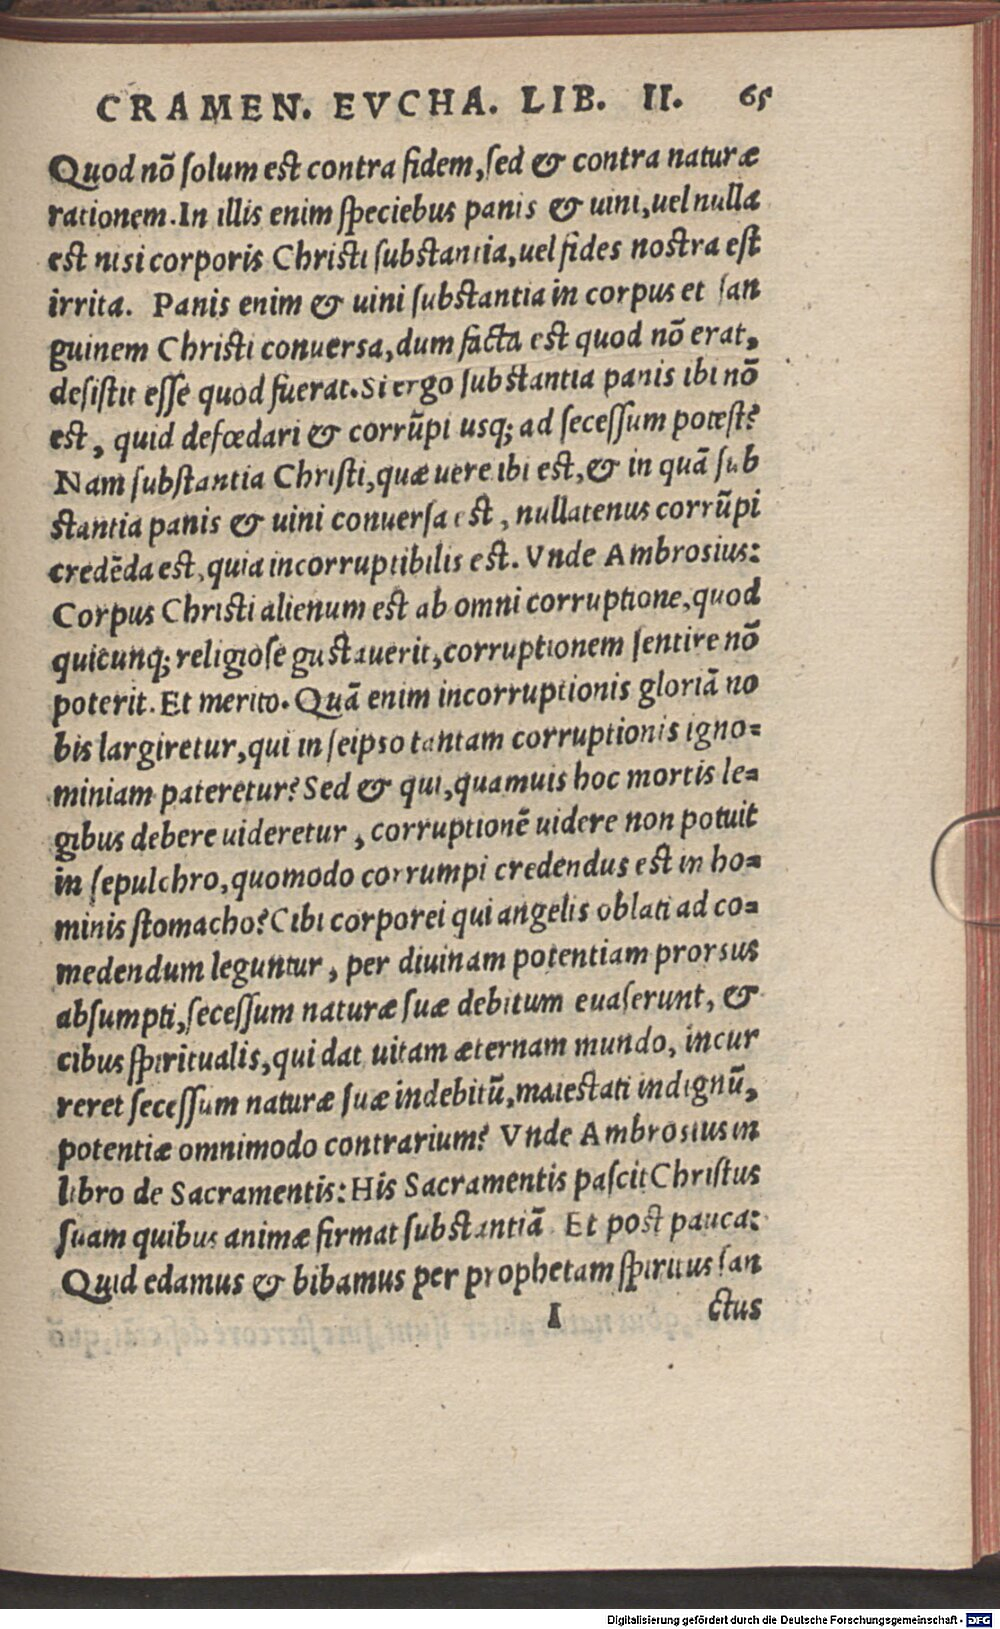 CRAMEN. EVCHA. LIB. II. 65
Quod nõ ſolum est contra fidem, ſed & contra naturæ
rationem. In illis enim ſpeciebus panis & uini, uel nulla
est nisi corporis Christi ſubstantia, uel fides nostra eſt
irrita. Panis enim & uini ſubstantia in corpus et ſan
guinem Christi conuersa, dum facta est quod nõ erat,
deſiſtit eſſe quod fuerat. Si ergo ſubstantia panis ibi nõ
est, quid defœdari & corrũpi usq; ad seceſſum poteſt?
Nam ſubſtantia Chriſti, quæ uere ibi est, & in quã ſub
stantia panis & uini conuerſa est, nullatenus corrũpi
credẽda est, quia incorruptibilis est. Vnde Ambrosius:
Corpus Christi alienum est ab omni corruptione, quod
quicunq; religioſe gustauerit, corruptionem ſentire nõ
poterit. Et merito. Quã enim incorruptionis gloriã no
bis largiretur, qui in ſeipso tantam corruptionis igno=
miniam pateretur? Sed & qui, quamuis hoc mortis le=
gibus debere uideretur, corruptionẽ uidere non potuit
in ſepulchro, quomodo corrumpi credendus est in ho=
minis ſtomacho? Cibi corporei qui angelis oblati ad co=
medendum leguntur, per diuinam potentiam prorsus
abſumpti, ſeceſſum naturæ ſuæ debitum euaſerunt, &
cibus ſpiritualis, qui dat uitam æternam mundo, incur
reret ſeceſſum naturæ ſuæ indebitũ, maiestati indignũ,
potentiæ omnimodo contrarium? Vnde Ambrosius in
libro de Sacramentis: His Sacramentis paſcit Chriſtus
ſuam quibus animæ firmat ſubstantiã Et post pauca:
Quid edamus & bibamus per prophetam ſpiritus ſan
I ctus
Digitalisierung gefördert durch die Deutsche Forschungsgemeinschaft - DFG